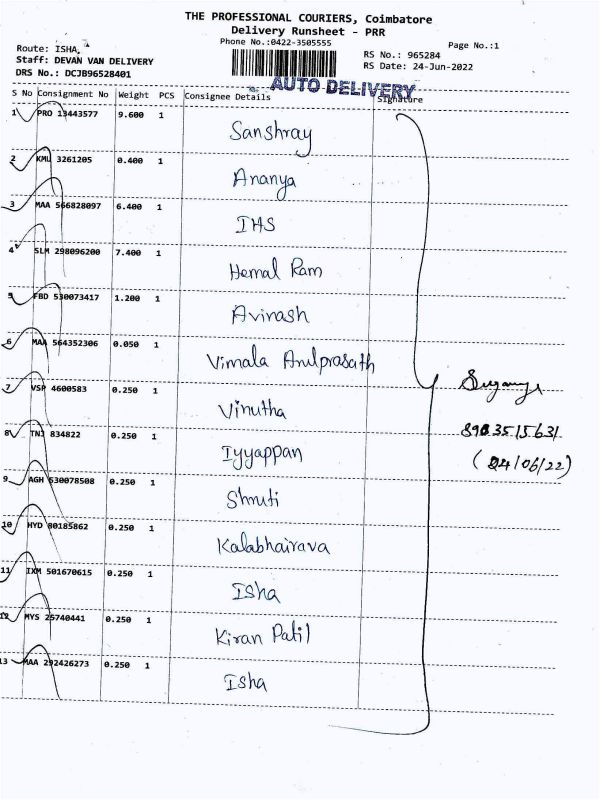 THE PROFESSIONAL COURIERS, Coimbatore
Delivery Runsheet - PRR
Phone No.:0422-3505555
Page No.:1
Route: ISHA,
Staff: DEVAN VAN DELIVERY
DRS No.: DCJB96528401
RS No.: 965284
RS Date: 24-Jun-2022
AUTO DELIVERY
S No Consignment No Weight PCS Consignee Details Signature
1 PRO 13443577 9.600 1 Sanshray
2 KML 3261205 0.400 1 Ananya
3 MAA 566828097 6.400 1 IHS
4 SLM 298096200 7.400 1 Hemal Ram
5 FBD 530073417 1.200 1 Avinash
6 MAA 564352306 0.050 1 Vimala Arulprasath
7 VSP 4600583 0.250 1 Vinutha
8 TNJ 834822 0.250 1 Iyyappan
9 AGH 530078508 0.250 1 Shruti
10 HYD 80185862 0.250 1 Kalabhairava
11 IXM 501670615 0.250 1 Isha
12 MYS 25740441 0.250 1 Kiran Patil
13 MAA 292426273 0.250 1 Isha
(24/06/22)